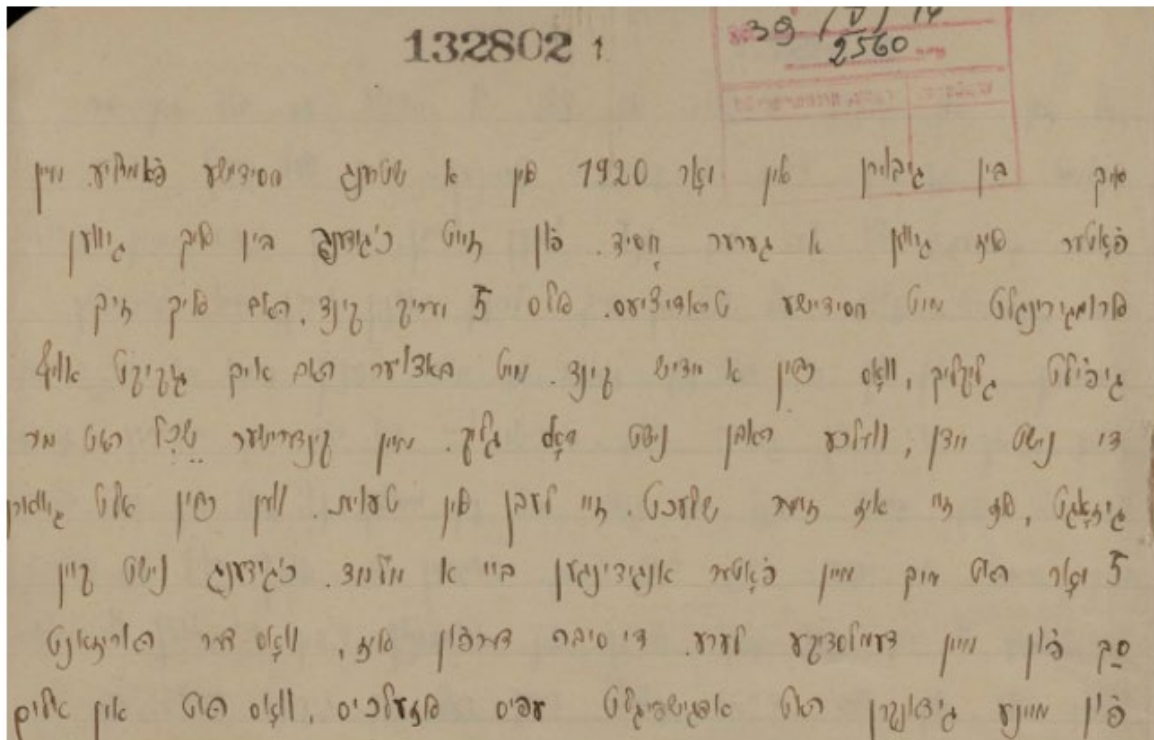 132802 1
39 (V) 14
2560
איך בין גיבוירן אין יאָר 1920 אין א שטרענג חסידישע פאַמיליע. מיין
פאָטער איז געווען א גערער חסיד. פון זייט כ'גידענק בין איך גיווען
ארומגירינגלט מיט חסידישע טראדיציעס. אלס 5 יעריק קינד, האב איך זיך
גיפילט גליקליך, וואָס כ'בין א יידיש קינד. מיט באדויער האב איך געקיקט אויף
די נישט יידן, וועלכע האבן נישט דאָס גליק. מיין קינדרישער שׂכל האט מיר
גיזאָגט, אז זיי איז זייער שלעכט. זיי לעבן אין טעות. ווען כ'בין אלט געווארן
5 יאָר האט מיך מיין פאָטער אנגידינגען ביי א מלמד. כ'גידענק נישט קיין
סך פון מיין דעמלסדיקע לערע. די סיבה דערפון איז, וואָס דער האריזאנט
פון מיינע גידאנקן האט אפגישפיגלט עפיס אזעלכיס, וואָס האט אין אלים